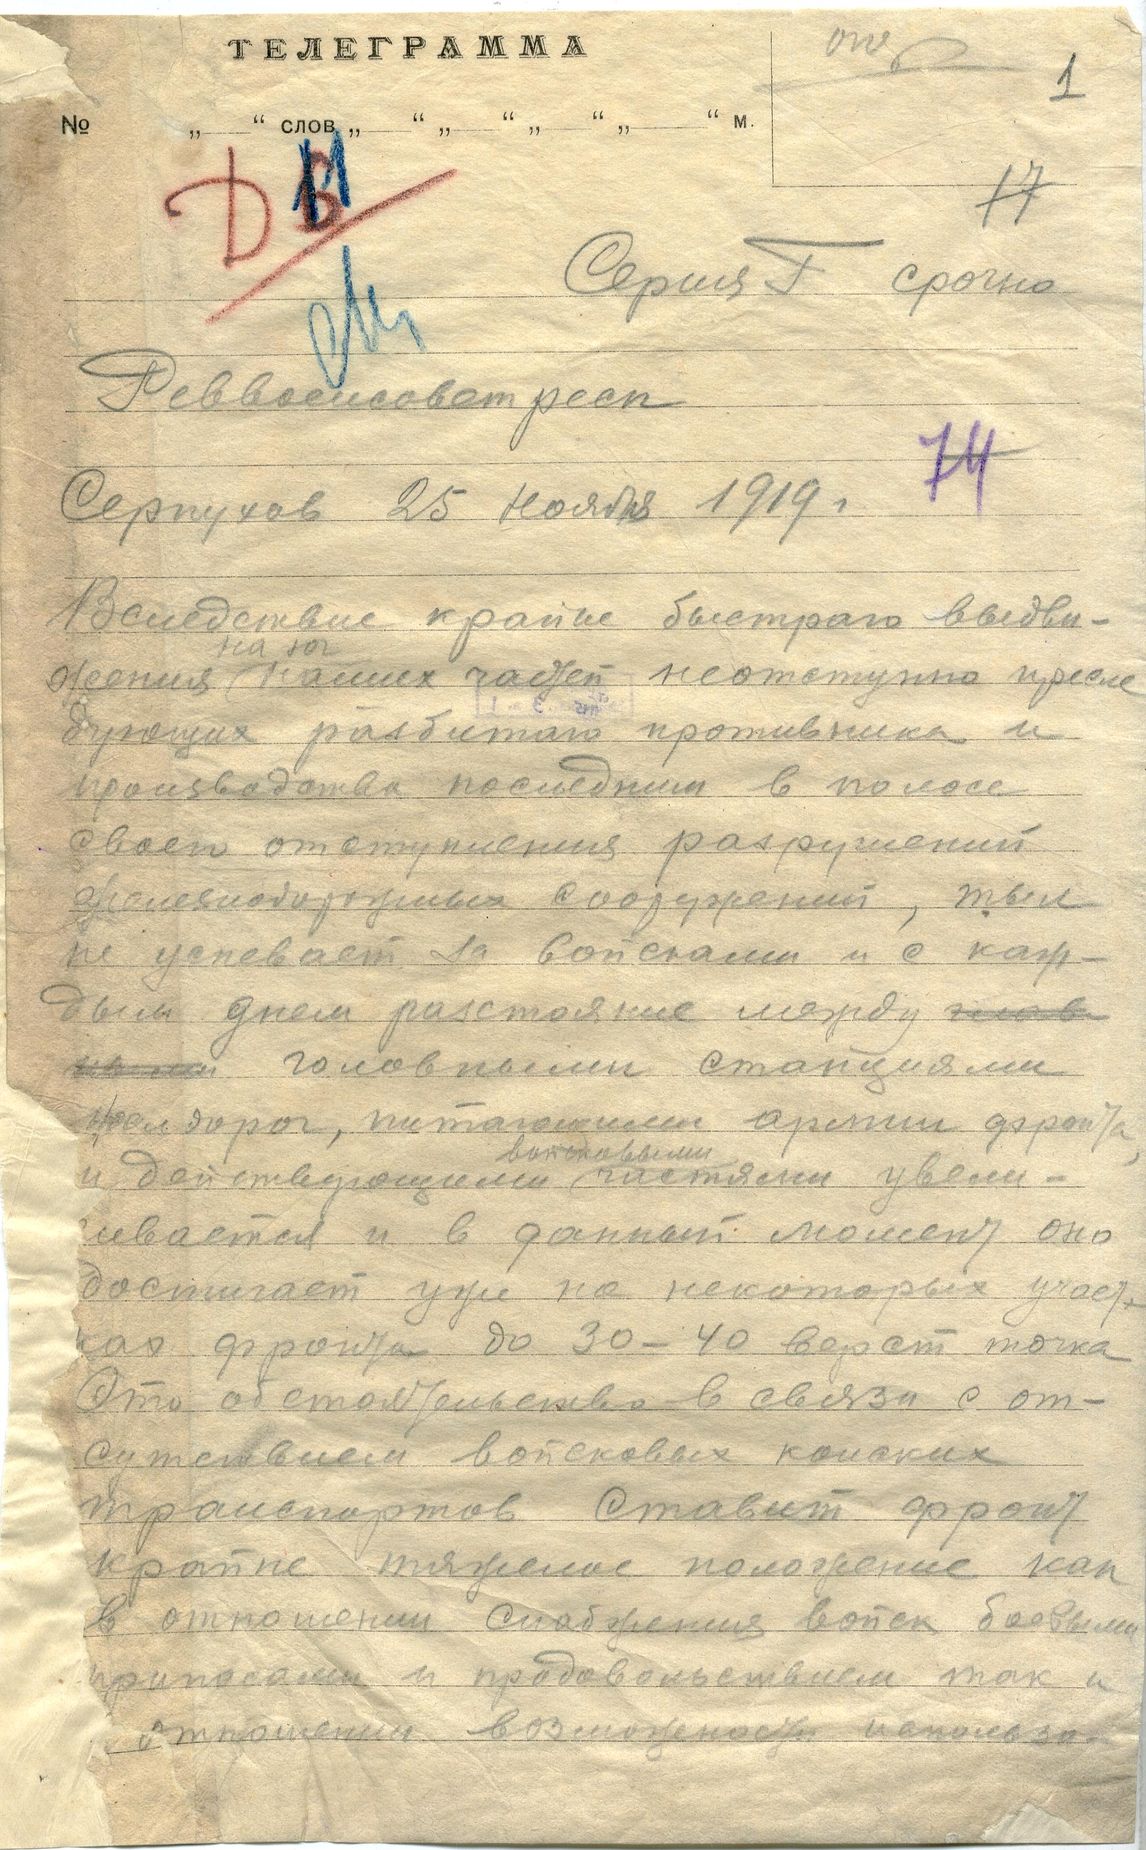 ТЕЛЕГРАММА
1
№ „ “ слов „ “ „ “ „ “ „ “ м.
17
Серия Г срочно
Реввоенсоветресп
74
Серпухов 25 ноября 1919 г
Вследствие крайне быстраго выдви-
на юг
жения наших частей неотступно пресле
дующих разбитаго противника и
производства последним в полосе
своего отступления разрушений
железнодорожных сооружений, тыл
не успевает за войсками и с каж-
дым днем разстояние между
головными станциями
жел дорог, питающими армии фронта,
войсковыми
и действующими частями увели-
чивается и в данный момент оно
достигает уже на некоторых участ-
ках фронта до 30-40 верст точка
Это обстоятельство в связи с от-
сутствием войсковых конских
транспортов ставит фронт
крайне тяжелое положение как
в отношении снабжения войск боевыми
припасами и продовольствием так и
отношении возможности использо-